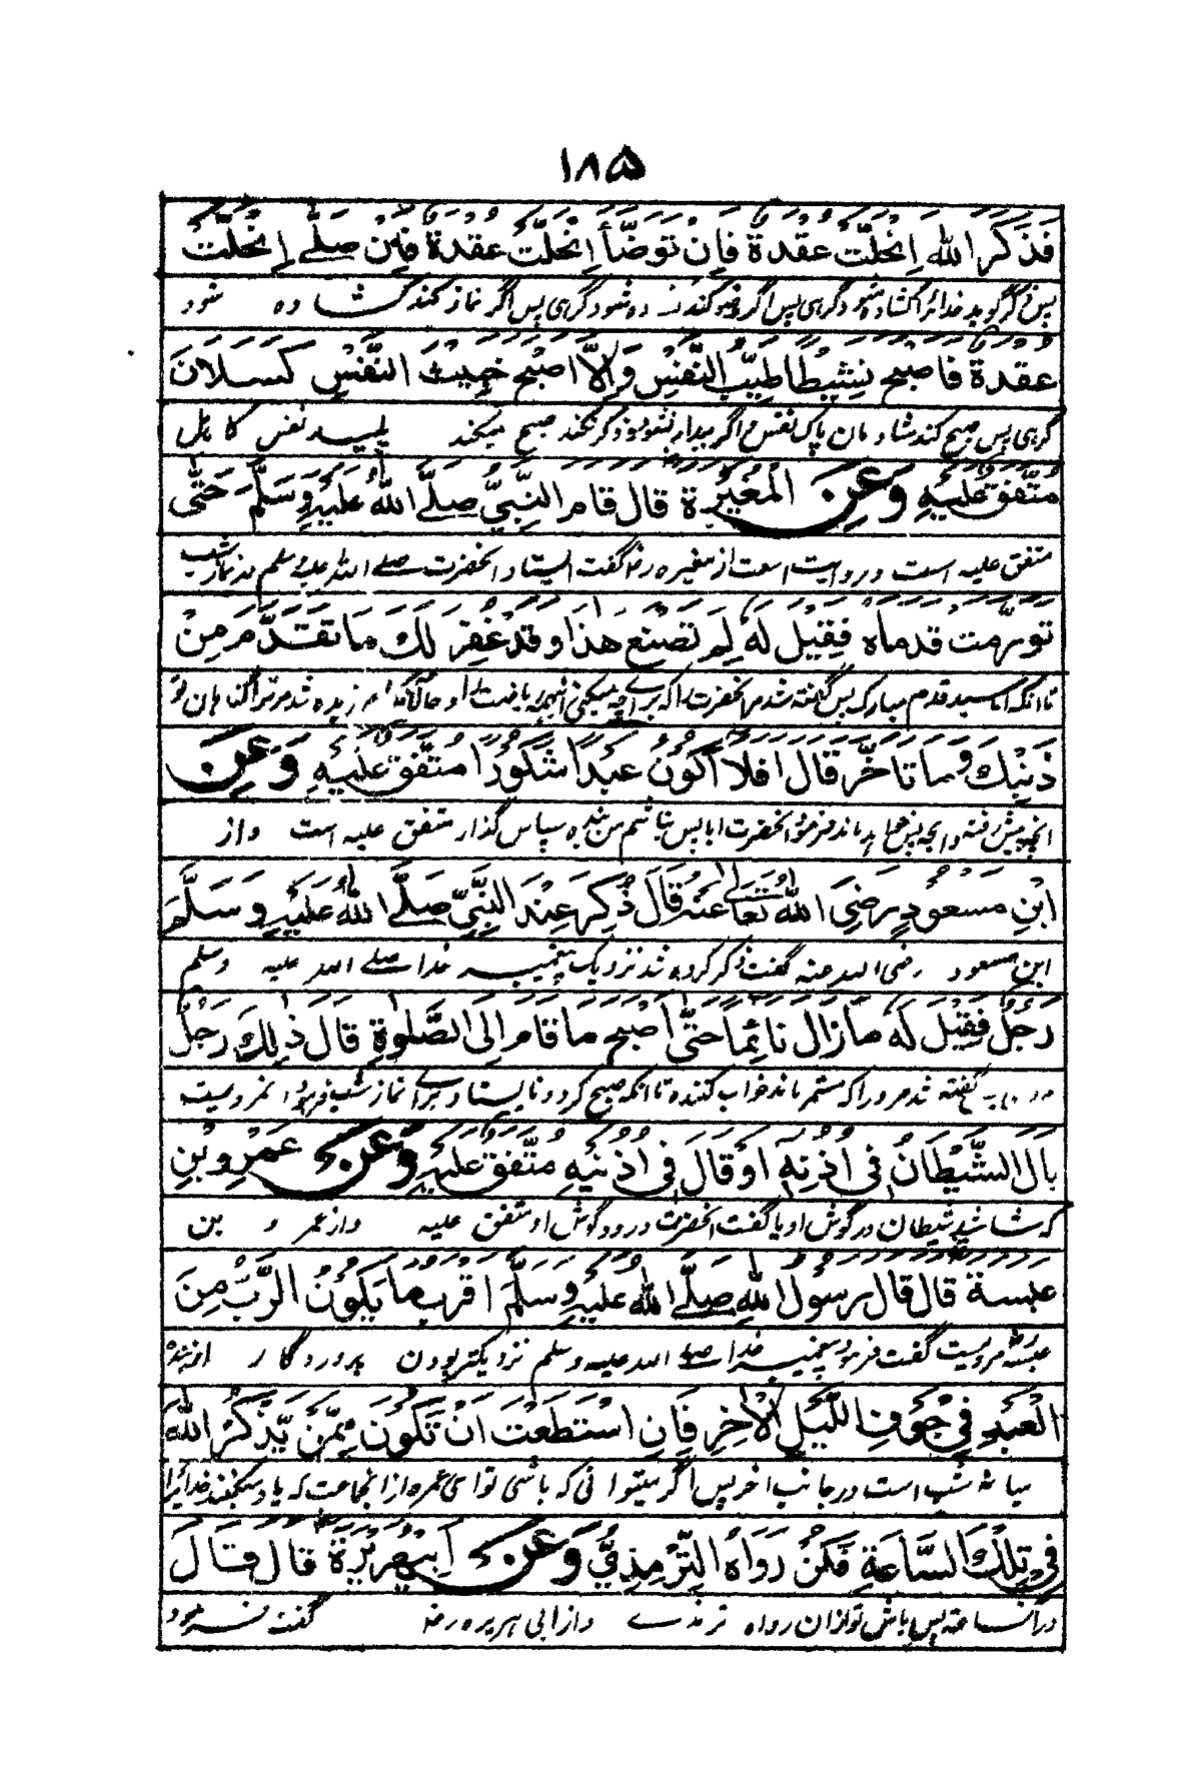 ۱۸۵
فَذَكَرَ اللّٰهَ اِنْحَلَّتْ عُقْدَةٌ فَاِنْ تَوَضَّأَ اِنْحَلَّتْ عُقْدَةٌ فَاِنْ صَلّٰى اِنْحَلَّتْ
پس اگر گوید خدا را کشاده شود گرهی پس اگر وضو کند ده شود گرهی پس اگر نماز کند کشا ده شود
عُقْدَةٌ فَاَصْبَحَ نَشِيْطًا طَيِّبَ النَّفْسِ وَاِلَّا اَصْبَحَ خَبِيْثَ النَّفْسِ كَسْلَانَ
گرهی پس صبح کند شادمان پاک نفس و اگر بیدار نشود و ذکر نکند صبح میکند پلید نفس کاہل
مُتَّفَقٌ عَلَيْهِ وَعَنِ الْمُغِيْرَةِ قَالَ قَامَ النَّبِيُّ صَلَّے اللّٰهُ عَلَيْهِ وَسَلَّمَ حَتّٰى
متفق علیه است و روایت است از مغیره رض گفت ایستاد آنحضرت صلے الله علیه وسلم در نماز شب
تَوَرَّمَتْ قَدَمَاهُ فَقِيْلَ لَهٗ لِمَ تَصْنَعُ هٰذَا وَقَدْ غُفِرَ لَكَ مَا تَقَدَّمَ مِنْ
تا آنکه آماسید قدم مبارک پس گفته شد مر آنحضرت را که برای چه میکنی اینهمه ریاضت را و حالانکه آمرزیده شد مر ترا گناهان تو
ذَنْبِكَ وَمَا تَاَخَّرَ قَالَ اَفَلَا اَكُوْنُ عَبْدًا شَكُوْرًا مُتَّفَقٌ عَلَيْهِ وَعَنِ
آنچه پیش رفته و آنچه پس ماند فرمود آنحضرت آیا پس نباشم من بنده سپاس گذار متفق علیه است واز
ابْنِ مَسْعُوْدٍ رَضِيَ اللّٰهُ تَعَالٰى عَنْهُ قَالَ ذُكِرَ عِنْدَ النَّبِيِّ صَلَّے اللّٰهُ عَلَيْهِ وَسَلَّمَ
ابن مسعود رضی الله عنه گفت ذکر کرده شد نزدیک پیغمبر خدا صلے الله علیه وسلم
رَجُلٌ فَقِيْلَ لَهٗ مَا زَالَ نَائِمًا حَتّٰى اَصْبَحَ مَا قَامَ اِلَى الصَّلٰوةِ قَالَ ذٰلِكَ رَجُلٌ
گفته شد مر او را که مستمر ماند خواب کننده تا آنکه صبح کرد و نایستاد برای نماز شب فرمود آنمرویست
بَالَ الشَّيْطَانُ فِي اُذُنِهٖ اَوْ قَالَ فِي اُذُنَيْهِ مُتَّفَقٌ عَلَيْهِ وَعَنْ عَمْرِو بْنِ
که شاشید شیطان در گوش او یا گفت آنحضرت در دو گوش او متفق علیه واز عمر و بن
عَبَسَةَ قَالَ قَالَ رَسُوْلُ اللّٰهِ صَلَّے اللّٰهُ عَلَيْهِ وَسَلَّمَ اَقْرَبُ مَا يَكُوْنُ الرَّبُّ مِنَ
عبسه مرویست گفت فرمود پیغمبر خدا صلے الله علیه وسلم نزدیکتر بودن پروردگار از بنده
الْعَبْدِ فِيْ جَوْفِ اللَّيْلِ الْاٰخِرِ فَاِنِ اسْتَطَعْتَ اَنْ تَكُوْنَ مِمَّنْ يَّذْكُرُ اللّٰهَ
میانه شب است در جانب اخر پس اگر میتوانی که باشی تو ازانجماعت که یاد میکنند خدایرا
فِيْ تِلْكَ السَّاعَةِ فَكُنْ رَوَاهُ التِّرْمِذِيُّ وَعَنْ اَبِيْ هُرَيْرَةَ قَالَ قَالَ
درآن ساعت پس باش تو ازان رواه ترمذے واز ابی هریره رض گفت فرمود